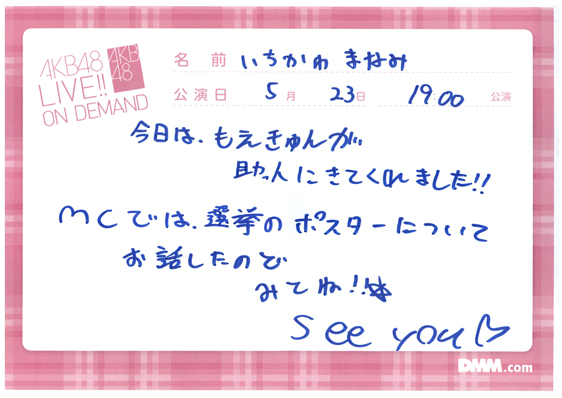 AKB48
LIVE!!
ON DEMAND
AKB
48
名前 いちかわ まなみ
公演日 5月 23日 19:00 公演
今日は、もえきゅんが
助っ人にきてくれました!!
MCでは、選挙のポスターについて
お話したので
みてね!!☆
See you♡
DMM.com